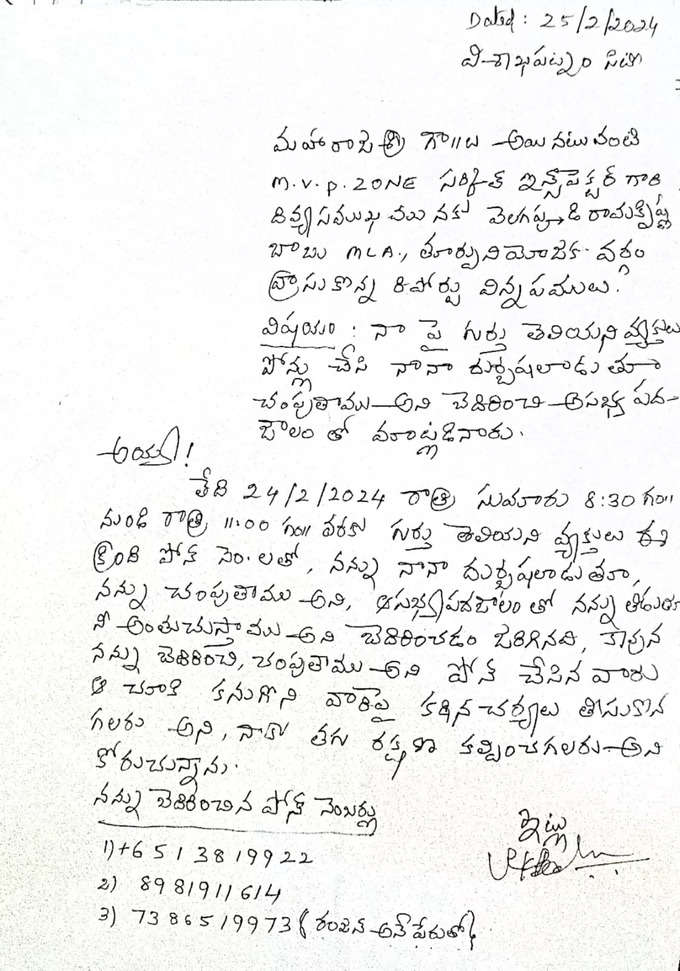 Dated: 25/2/2024
విశాఖపట్నం సిటి
మహారాజశ్రీ గౌ॥ట అయినటువంటి
M.V.P. ZONE సర్కిల్ ఇన్స్పెక్టర్ గారి
దివ్యసముఖములు నకు వెలగపూడి రామకృష్ణ
బాబు MLA., తూర్పునియోజక వర్గం
వ్రాసుకొన్న రిపోర్టు విన్నపములు.
విషయం : నా పై గుర్తు తెలియని వ్యక్తులు
ఫోన్లు చేసి నానా దుర్భషలాడుతూ
చంపుతాము అని బెదిరించి అసభ్య పద-
జాలం తో మాట్లడినారు.
అయ్యా!
తేది 24/2/2024 రాత్రి సుమారు 8:30 గం॥
నుండి రాత్రి 11:00 గం॥ వరకు గుర్తు తెలియని వ్యక్తులు ఈ
క్రింది ఫోన్ నెం.లతో, నన్ను నానా దుర్భషలాడుతూ,
నన్ను చంపుతాము అని, అసభ్యపదజాలం తో నన్ను
నీ అంతుచుస్తాము అని బెదిరించడం జరిగినది, కావున
నన్ను బెదిరించి, చంపుతాము అని ఫోన్ చేసిన వారు
ఆ చూకి కనుగొని వారిపై కఠినచర్యలు తీసుకొన
గలరు అని, నాకు తగు రక్షణ కల్పించగలరు అని
కోరుచున్నాను.
నన్ను బెదిరించిన ఫోన్ నెంబర్లు
1) +6 5 1 3 8 1 9 9 2 2
2) 8981911614
3) 7386519973 (రంజన్ అనే పేరుతో)
ఇట్లు